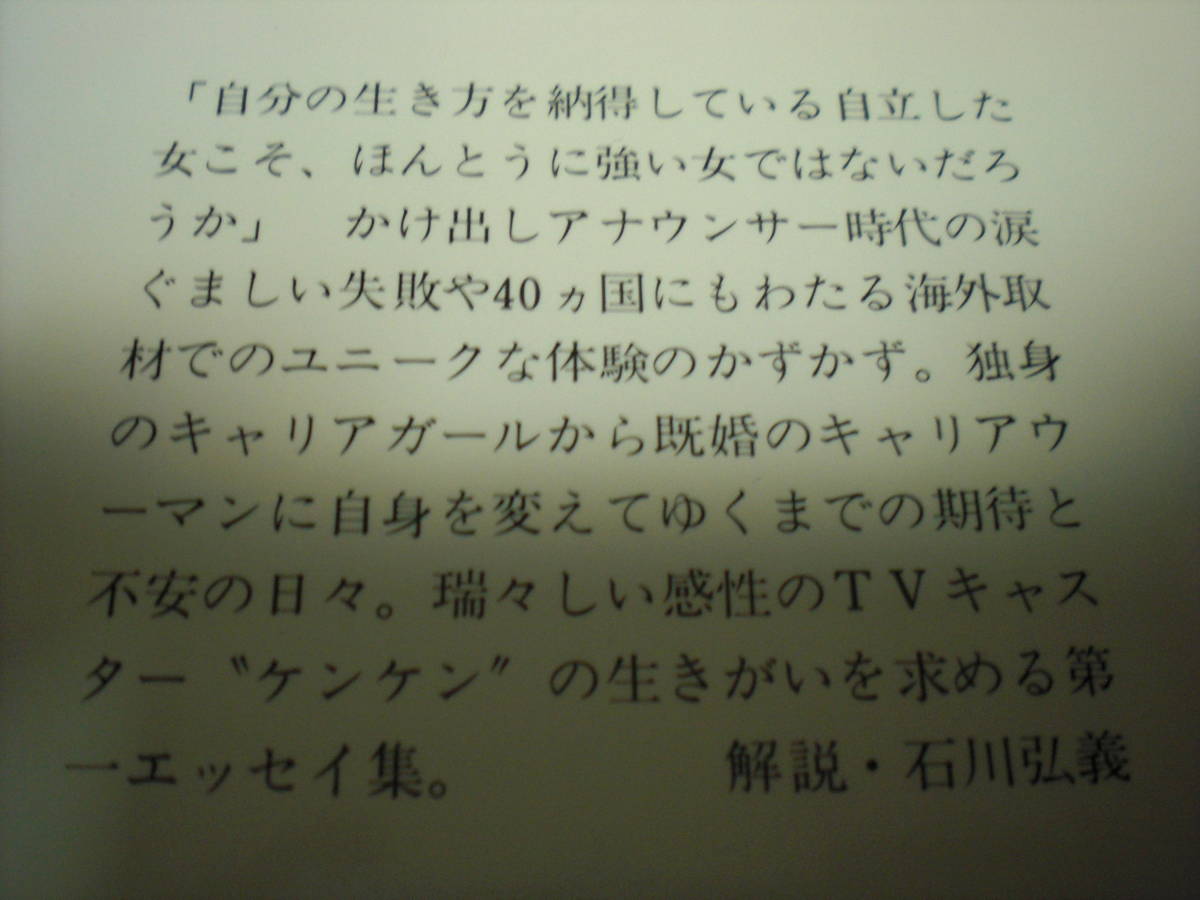 「自分の生き方を納得している自立した
女こそ、ほんとうに強い女ではないだろ
うか」　かけ出しアナウンサー時代の涙
ぐましい失敗や40ヵ国にもわたる海外取
材でのユニークな体験のかずかず。独身
のキャリアガールから既婚のキャリアウ
ーマンに自身を変えてゆくまでの期待と
不安の日々。瑞々しい感性のTVキャス
ター〝ケンケン〟の生きがいを求める第
一エッセイ集。　解説・石川弘義